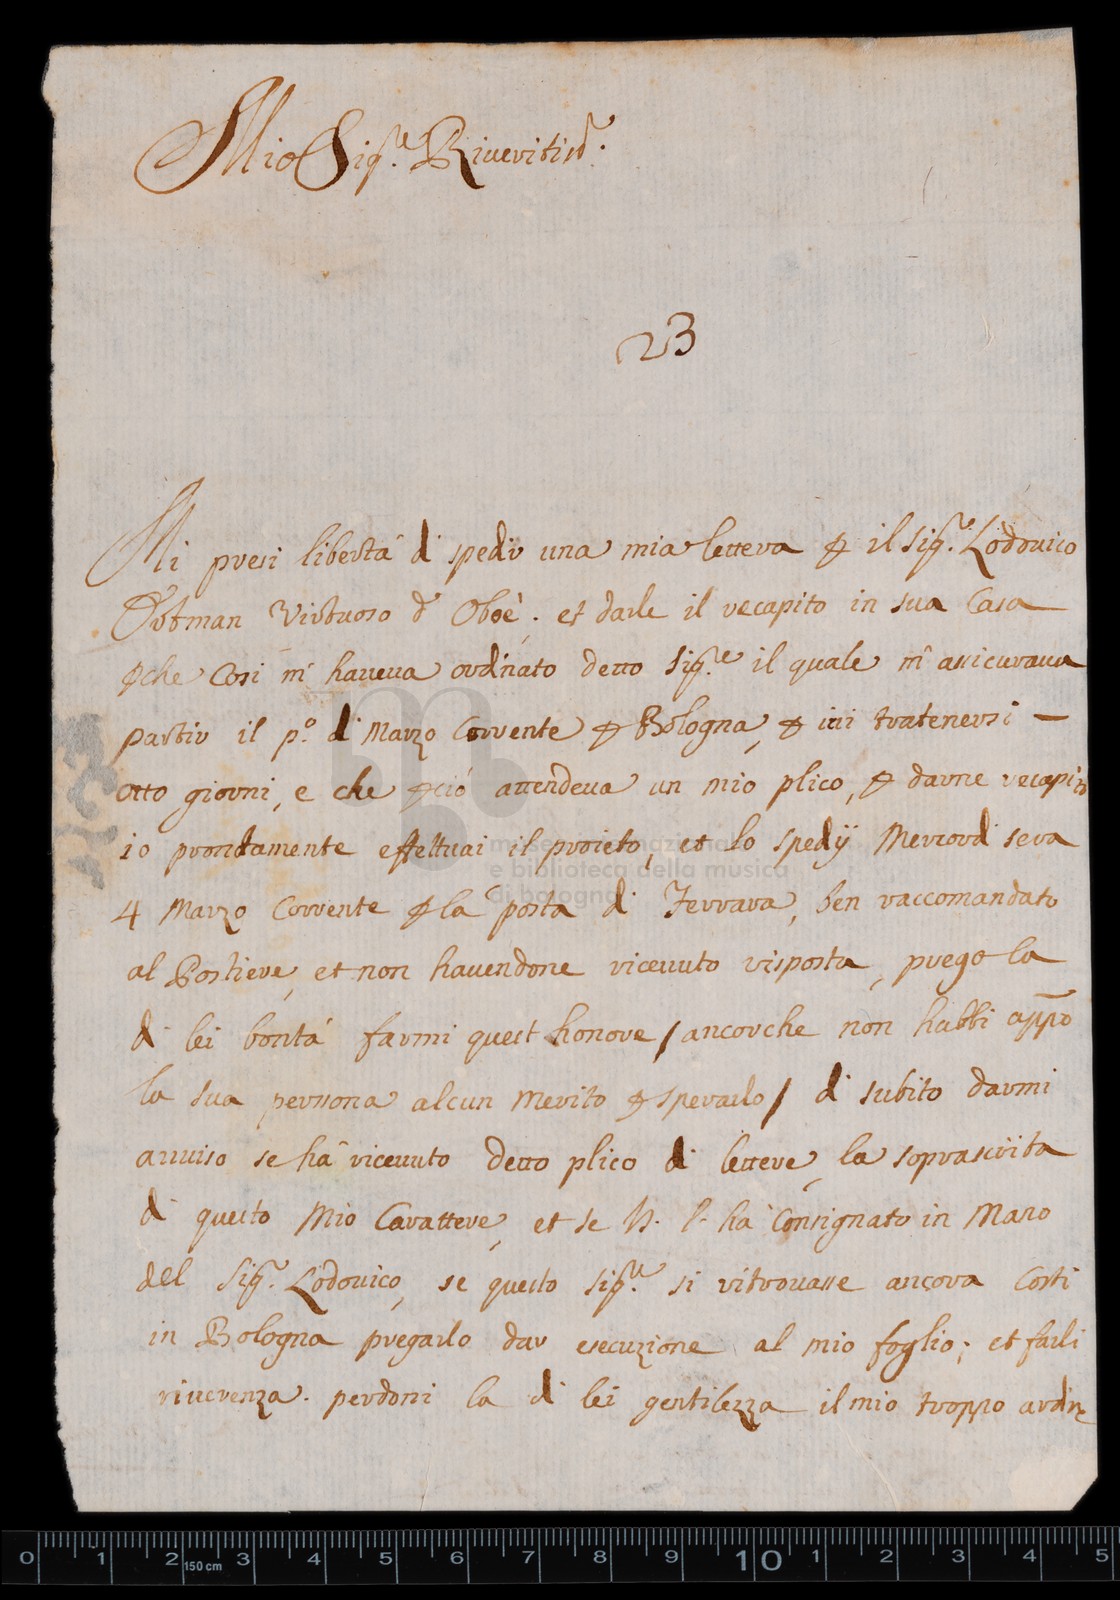 Mio Sig.re Riueritis.mo
23
Mi presi libertà di spedir una mia lettera p il Sig.r Lodouico
Ortman Virtuoso d' Oboè. et darle il recapito in sua Casa
pche Cosi m' haueua ordinato detto Sig.re il quale m' assicuraua
partir il p.o di Marzo Corrente p Bologna, p iui tratenersi —
otto giorni, e che pciò attendeua un mio plico, p darne recapito
io prontamente effettuai il proieto, et lo spedij Mercordi sera
4 Marzo Corrente p la posta di Ferrara, ben raccomandato
al Postiere, et non hauendone riceuuto risposta, prego la
di lei bontà farmi quest honore / ancorche non habbi appo
la sua persona alcun merito p sperarlo / di subito darmi
auuiso se hà riceuuto detto plico di lettere, la soprascrita
di questo Mio Carattere, et se ha Consignato in Mano
del Sig.r Lodouico, se questo Sig.re si ritrouasse ancora Costi
in Bologna pregarlo dar esecuzione al mio foglio; et farli
riuerenza. perdoni la di lei gentilezza il mio troppo ardire
museo internazionale
e biblioteca della musica
di bologna
0 1 2 3 4 5 6 7 8 9 10 1 2 3 4 5
150 cm